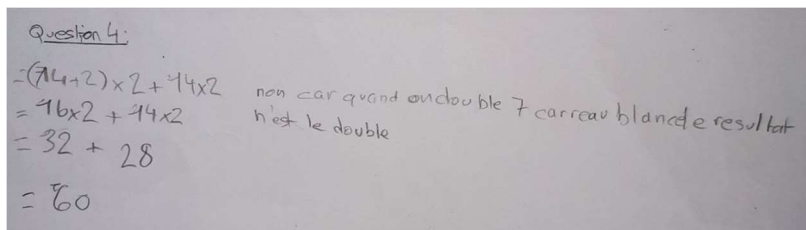 Question 4:
=(14+2)×2+14×2
= 16×2 + 14×2
= 32 + 28
= 60
non car quand on double 7 carreau blancde resultat
n'est le double